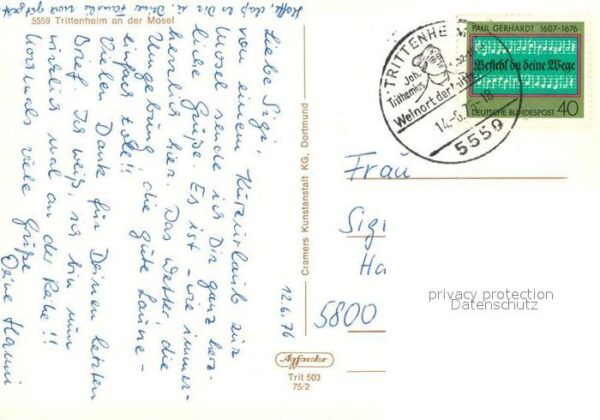 Hoffe, daß es Dir u. Deine Familie auch gut geht.
5559 Trittenheim an der Mosel
Liebe Sigi,
von einem Kurzurlaub zur
Mosel sende ich Dir ganz herz-
liche Grüße. Es ist - wie immer -
herrlich hier. Das Wetter, die
Umgebung, die gute Laune -
einfach tolle!!
Vielen Dank für Deinen letzten
Brief. Ich weiß, ich bin nun
wirklich mal an der Reihe!!
Nochmals viele Grüße
Deine Hanni
12.6.76
Cramers Kunstanstalt KG, Dortmund
Agfacolor
Trit 503
75/2
TRITTENHEIM
Joh.
Trithemius
Weinort der
14.-6.76-18
5559
PAUL GERHARDT 1607-1676
Befiehl du deine Wege
DEUTSCHE BUNDESPOST 40
Frau
Sig
Ha
5800
privacy protection
Datenschutz